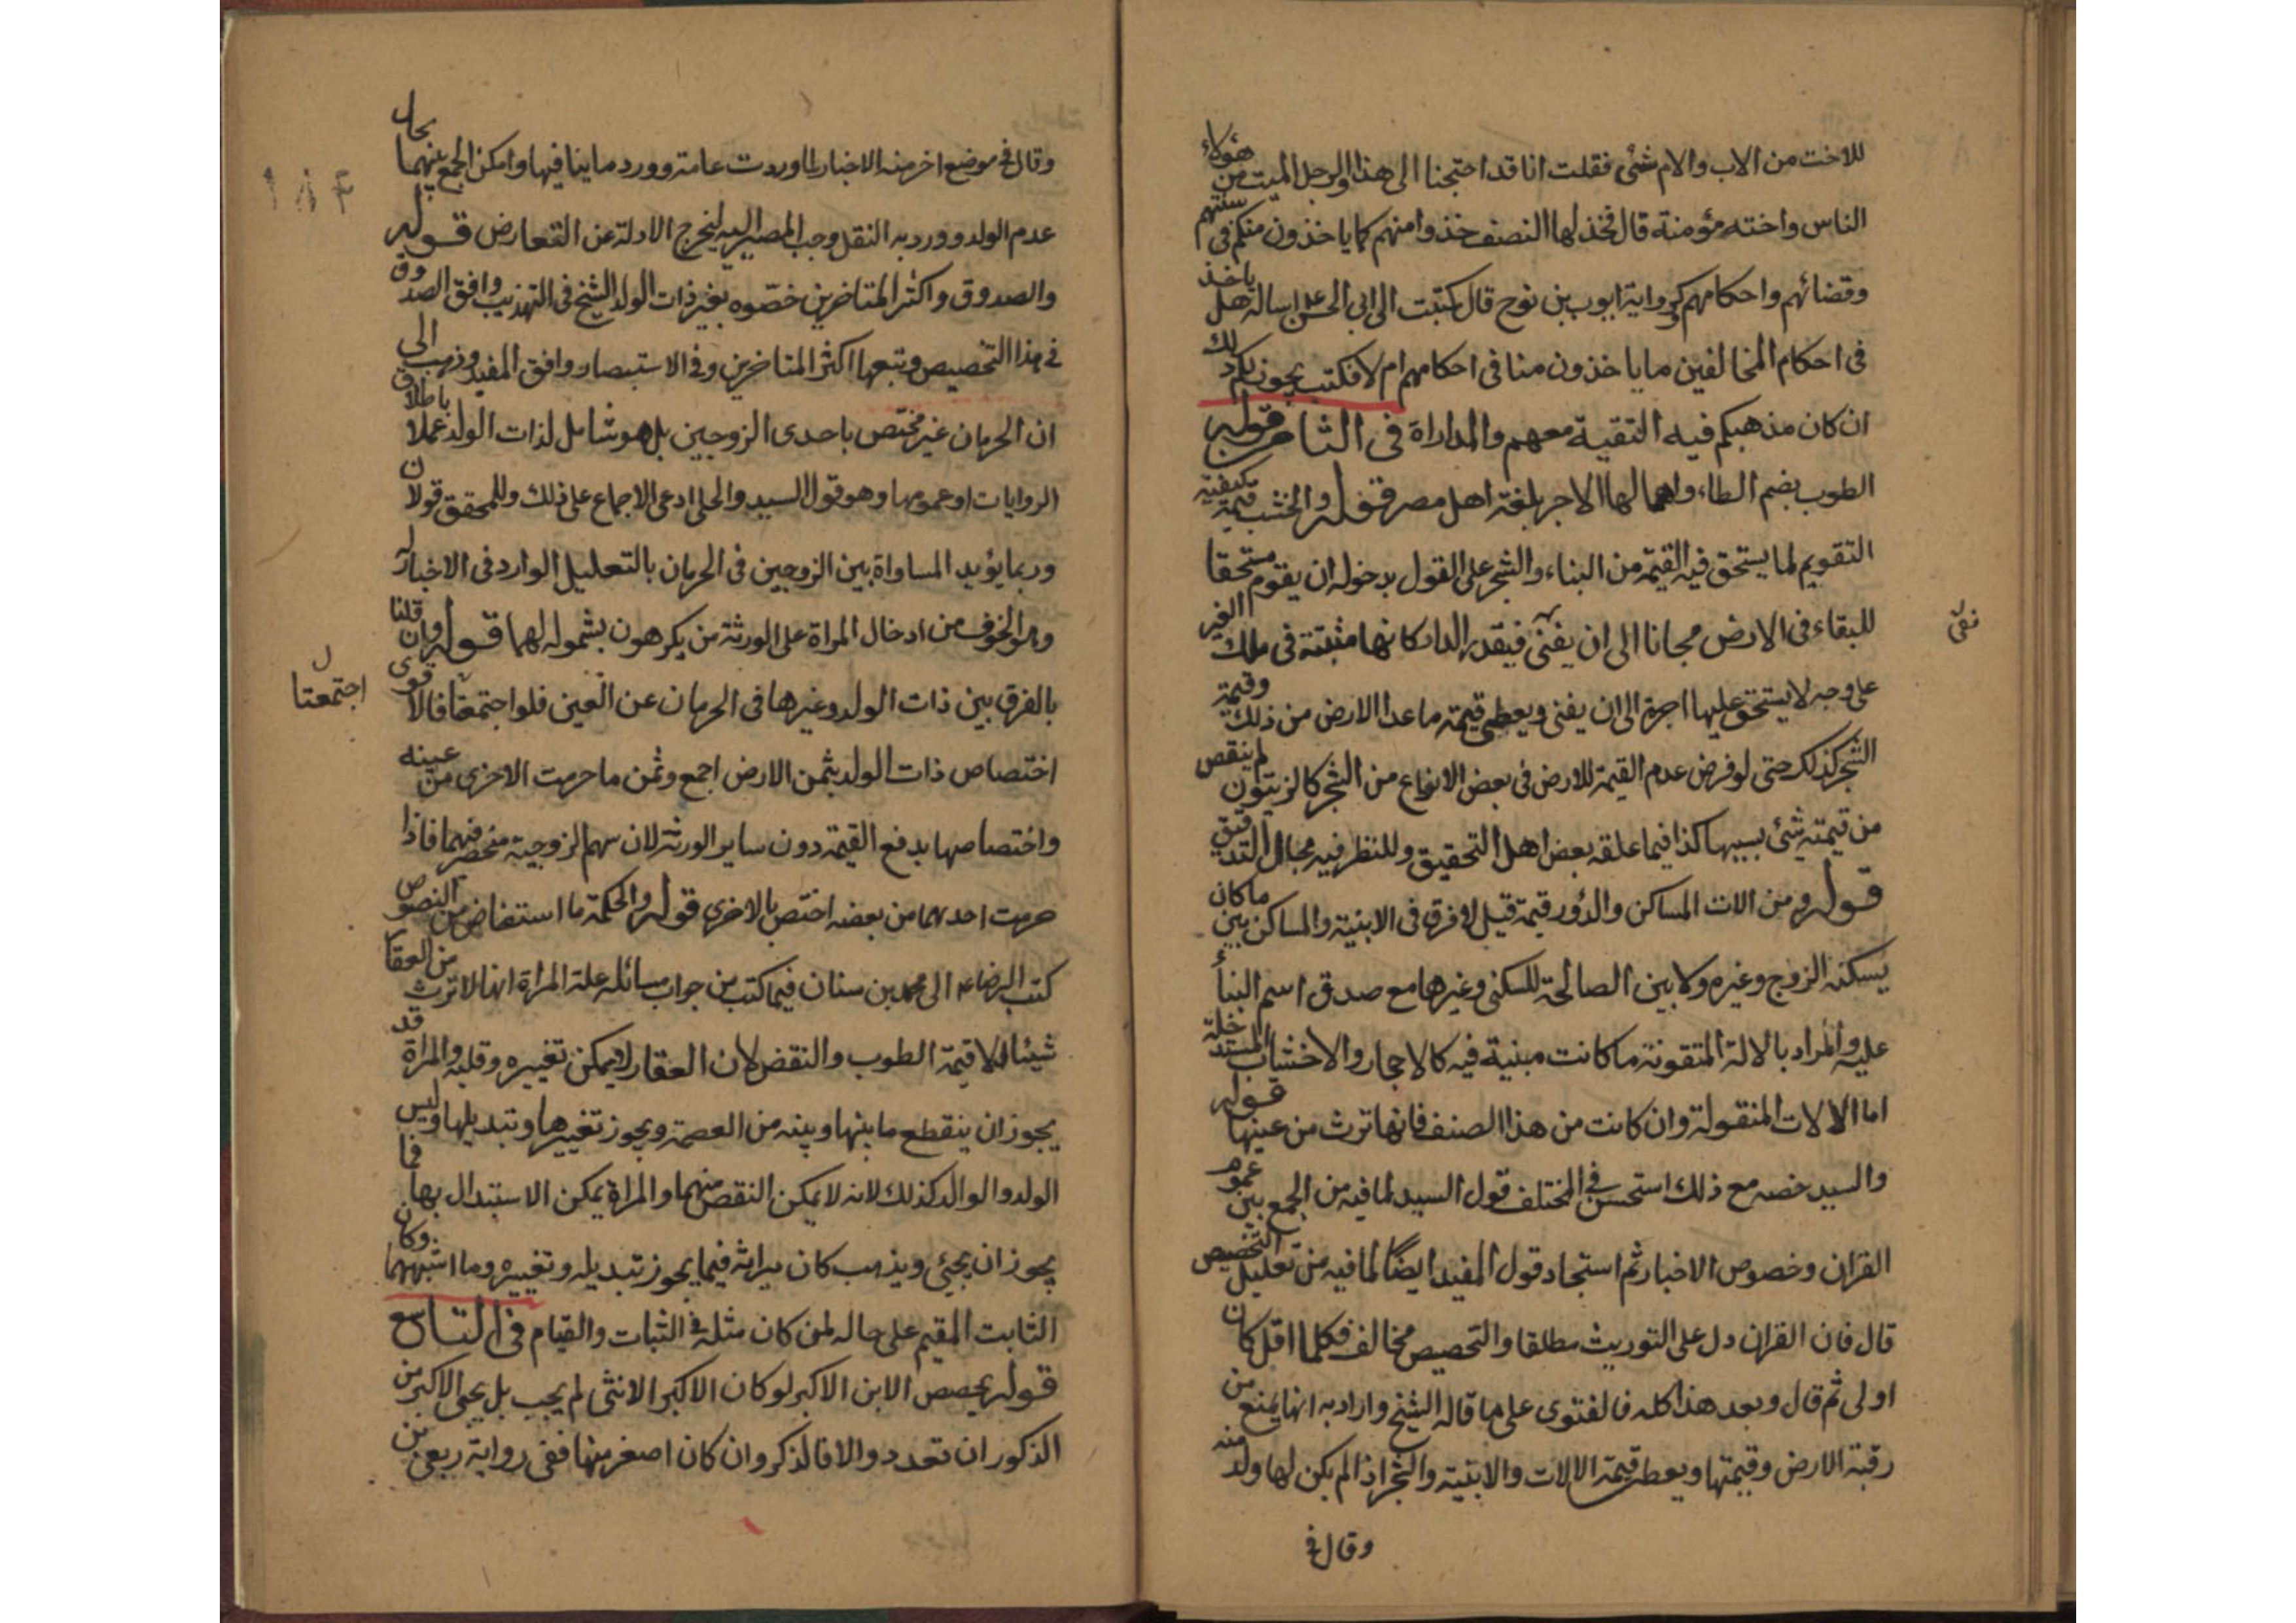 للاخت من الاب والام شئ فقلت انا قد احتجنا الى هذا والرجل الميت من هؤلاء
الناس واخته مؤمنة قال فخذ لها النصف خذوا منهم كما ياخذون منكم فى سنتهم
وقضائهم واحكامهم كرواية ايوب بن نوح قال كتبت الى ابى الحسن اساله هل ياخذ
فى احكام المخالفين ما ياخذون منا فى احكامهم ام لا فكتب يجوز لكم ذلك
ان كان مذهبكم فيه التقية معهم والمداراة فى الثامن قوله
الطوب بضم الطاء واهمالها الاجر بلغة اهل مصر قوله والخشب قيمة كيفية
التقويم لما يستحق فيه القيمة من البناء والشجر على القول بدخوله ان يقوم مستحقا
للبقاء فى الارض مجانا الى ان يفنى فيقدر الدار كانها مثبتة فى ملك الغير
على وجه لا يستحق عليها اجرة الى ان يفنى ويعطى قيمة ما عدا الارض من ذلك وقيمة
الشجر كذلك حتى لو فرض عدم القيمة للارض فى بعض الانواع من الشجر كالزيتون لم ينقص
من قيمته شئ بسببها كذا فيما علقه بعض اهل التحقيق وللنظر فيه مجال التدقيق
قوله ومن الات المساكن والدور قيمة قيل لا فرق فى الابنية والمساكن بين ما كان
يسكنه الزوج وغيره ولا بين الصالحة للسكنى وغيرها مع صدق اسم البناء
عليه والمراد بالالة المتقونة ما كانت مبنية فيه كالاحجار والاخشاب المستدخلة
اما الالات المنقولة وان كانت من هذا الصنف فانها ترث من عينها قوله
والسيد خصه مع ذلك استحسن فى المختلف قول السيد لما فيه من الجمع بين عموم
القران وخصوص الاخبار ثم استجاد قول المفيد ايضا لما فيه من تعليل التخصيص
قال فان القران دل على التوريث مطلقا والتخصيص مخالف فكلما اقل كان
اولى ثم قال وبعد هذا كله فالفتوى على ما قاله الشيخ واراد به انها يمنع من
رقبة الارض وقيمتها ويعطى قيمة الالات والابنية والشجر اذا لم يكن لها ولد منه
وقال فى
نقى
وقال فى موضع اخر منه الاخبار لما وردت عامة وورد ما ينافيها وامكن الجمع بينهما بحال
عدم الولد وورد به النقل وجب المصير اليه ليخرج الادلة عن التعارض قوله
والصدوق واكثر المتاخرين خصوه بغير ذات الولد الشيخ فى التهذيب وافق الصدوق
فى هذا التخصيص وتبعها اكثر المتاخرين وفى الاستبصار وافق المفيد وذهب الى
ان الحرمان غير مختص باحدى الزوجين بل هو شامل لذات الولد عملا باطلاق
الروايات او عمومها وهو قول السيد والحلى ادعى الاجماع على ذلك وللمحقق قولان
وربما يؤيد المساواة بين الزوجين فى الحرمان بالتعليل الوارد فى الاخبار له
وهو الخوف من ادخال المراة على الورثة من يكرهون بشموله لهما قوله وان قلنا
بالفرق بين ذات الولد وغيرها فى الحرمان عن العين فلو اجتمعتا فالاقوى
اختصاص ذات الولد بثمن الارض اجمع وثمن ما حرمت الاخرى من عينه
واختصاصها بدفع القيمة دون ساير الورثة لان سهم الزوجية منحصر فيهما فاذا
حرمت احدهما من بعضه اختص بالاخرى قوله والحكمة ما استفاض من النصوص
كتب الرضا ع الى محمد بن سنان فيما كتب من جواب مسائله علة المراة انها لا ترث من العقار
شيئا الا قيمة الطوب والنقض لان العقار لا يمكن تغييره وقلبه والمراة قد
يجوز ان ينقطع ما بينها وبينه من العصمة ويجوز تغييرها وتبديلها وليس
الولد والوالد كذلك لانه لا يمكن النقص منهما والمراة يمكن الاستبدال بها فما
يجوز ان يجئ ويذهب كان ميراثه فيما يجوز تبديله وتغييره وما اشبههما وكان
الثابت المقيم على حاله لمن كان مثله فى الثبات والقيام فى التاسع
قوله يخصص الابن الاكبر لو كان الاكبر الانثى لم يجب بل يحبى الاكبر من
الذكور ان تعدد والا فالذكر وان كان اصغر منها ففى رواية ربعى بن
ل
اجتمعتا